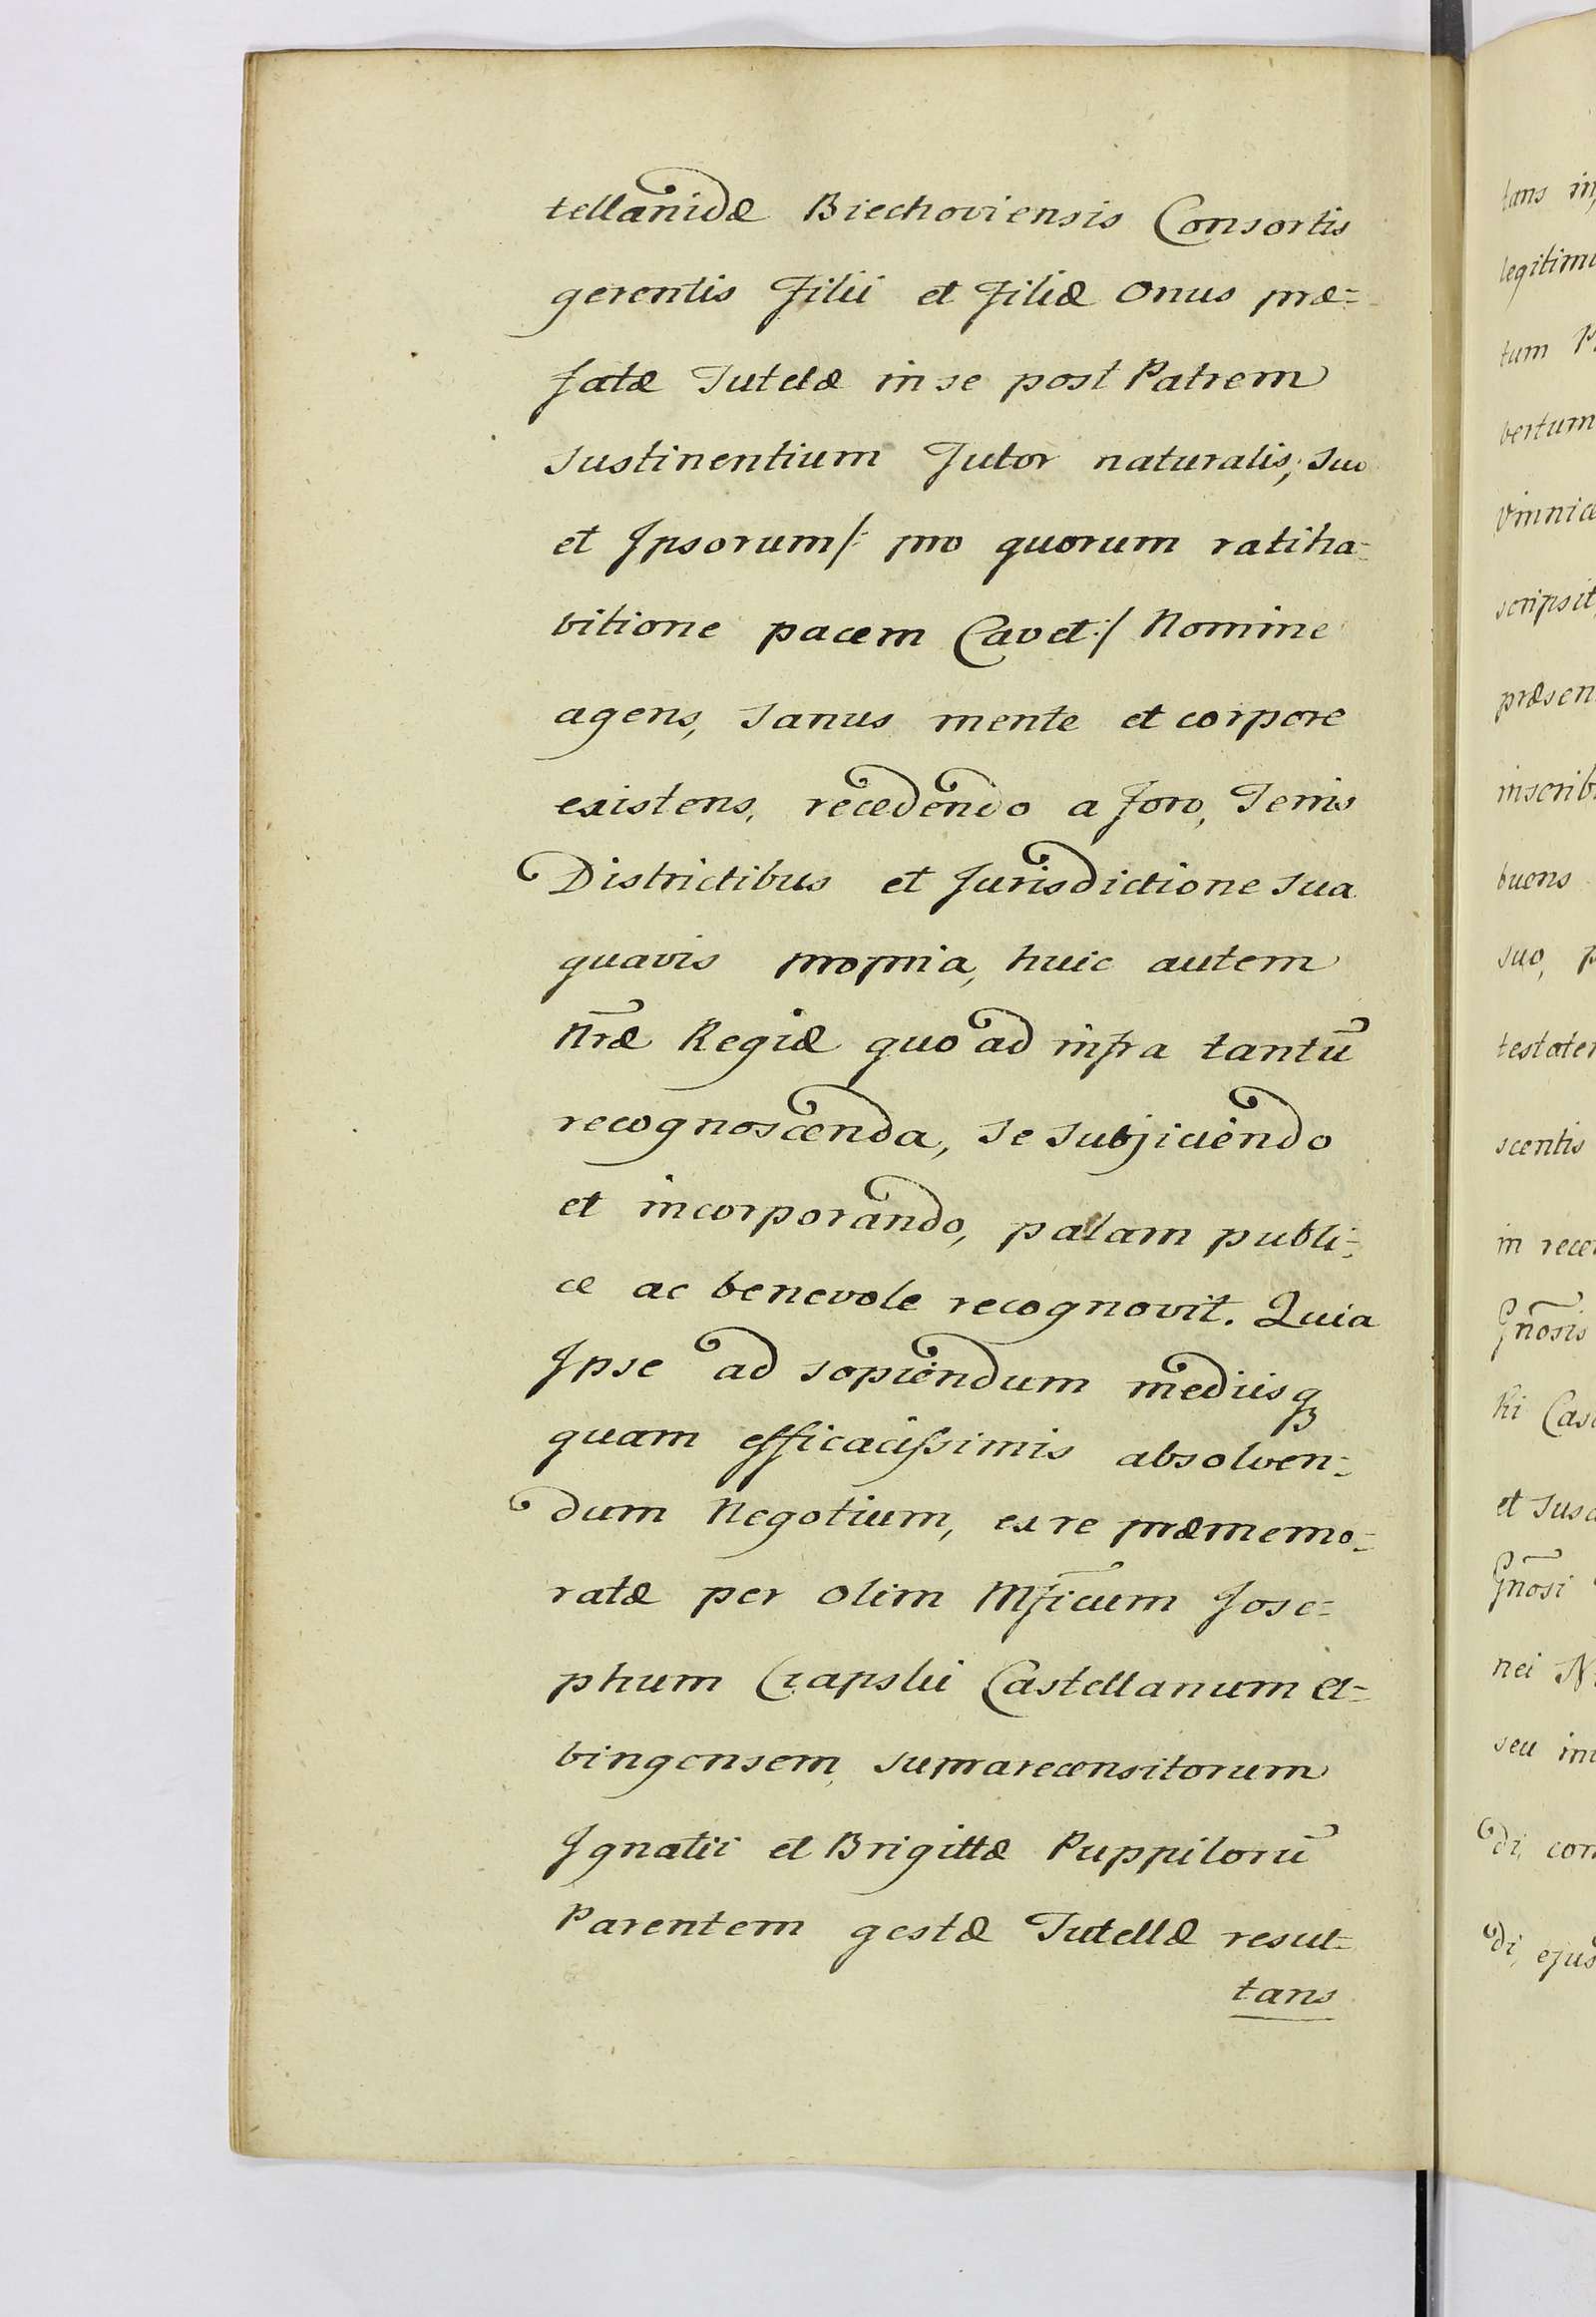 tellanidæ Biechoviensis Consortis
gerentis Filii et Filiæ onus præ=
fatæ Tutelæ in se post Patrem
sustinentium Tutor naturalis, suo
et Ipsorum /: pro quorum ratiha=
bitione pacem Cavet :/ Nomine
agens, sanus mente et corpore
existens, recedendo a foro, Terris
Districtibus et Jurisdictione sua
quavis propria, huic autem
Nr̃æ Regiæ quo ad infra tantũ
recognoscenda, se subjiciendo
et incorporando, palam publi=
ce ac benevole recognovit. Quia
Ipse ad sopiendum mediisqꝫ
quam efficacissimis absolven=
dum Negotium, ex re præmemo=
ratæ per olim Mficum Jose=
phum Czapski Castellanum El=
bingensem, supra recensitorum
Ignatii et Brigittæ Puppilorũ
Parentem gestæ Tutellæ resul=
tans
tans
legitim
tum
bertum
Vinnic
scripsit
præsen
inscrib
buens
suo, p
testate
scentis
in rece
Gn̄osis
ki Cas
et sus
Gn̄osi
nei N
seu in
di, con
di, ejus